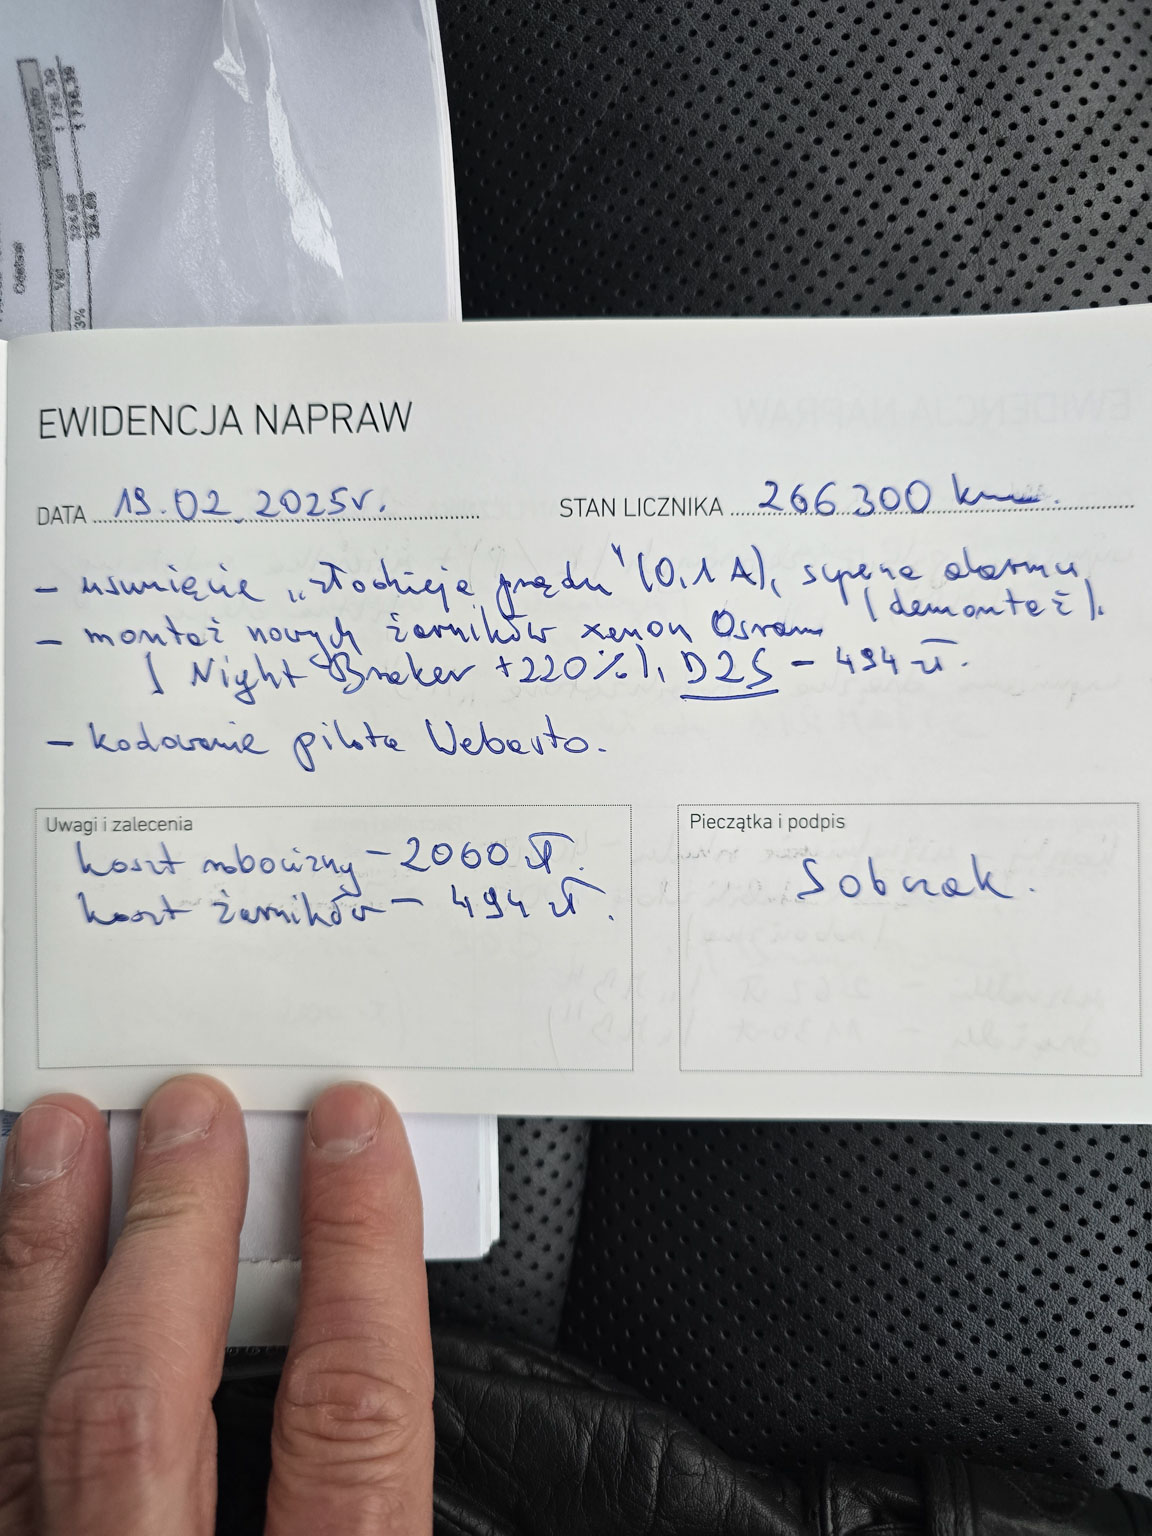 Wart.brutto
1 736.39
1 736.39
Vat
324.69
324.69
3%
Odetsai
EWIDENCJA NAPRAW
DATA 19.02.2025r.
STAN LICZNIKA 266 300 km.
- usunięcie „złodzieja prądu" (0,1 A), syrena alarmu
(demontaż).
- montaż nowych żarników xenon Osram
(Night Breaker +220%), D2S - 494 zł.
- kodowanie pilota Webasto.
Uwagi i zalecenia
koszt robocizny - 2060 zł.
koszt żarników - 494 zł.
Pieczątka i podpis
Sobczak.
NIP